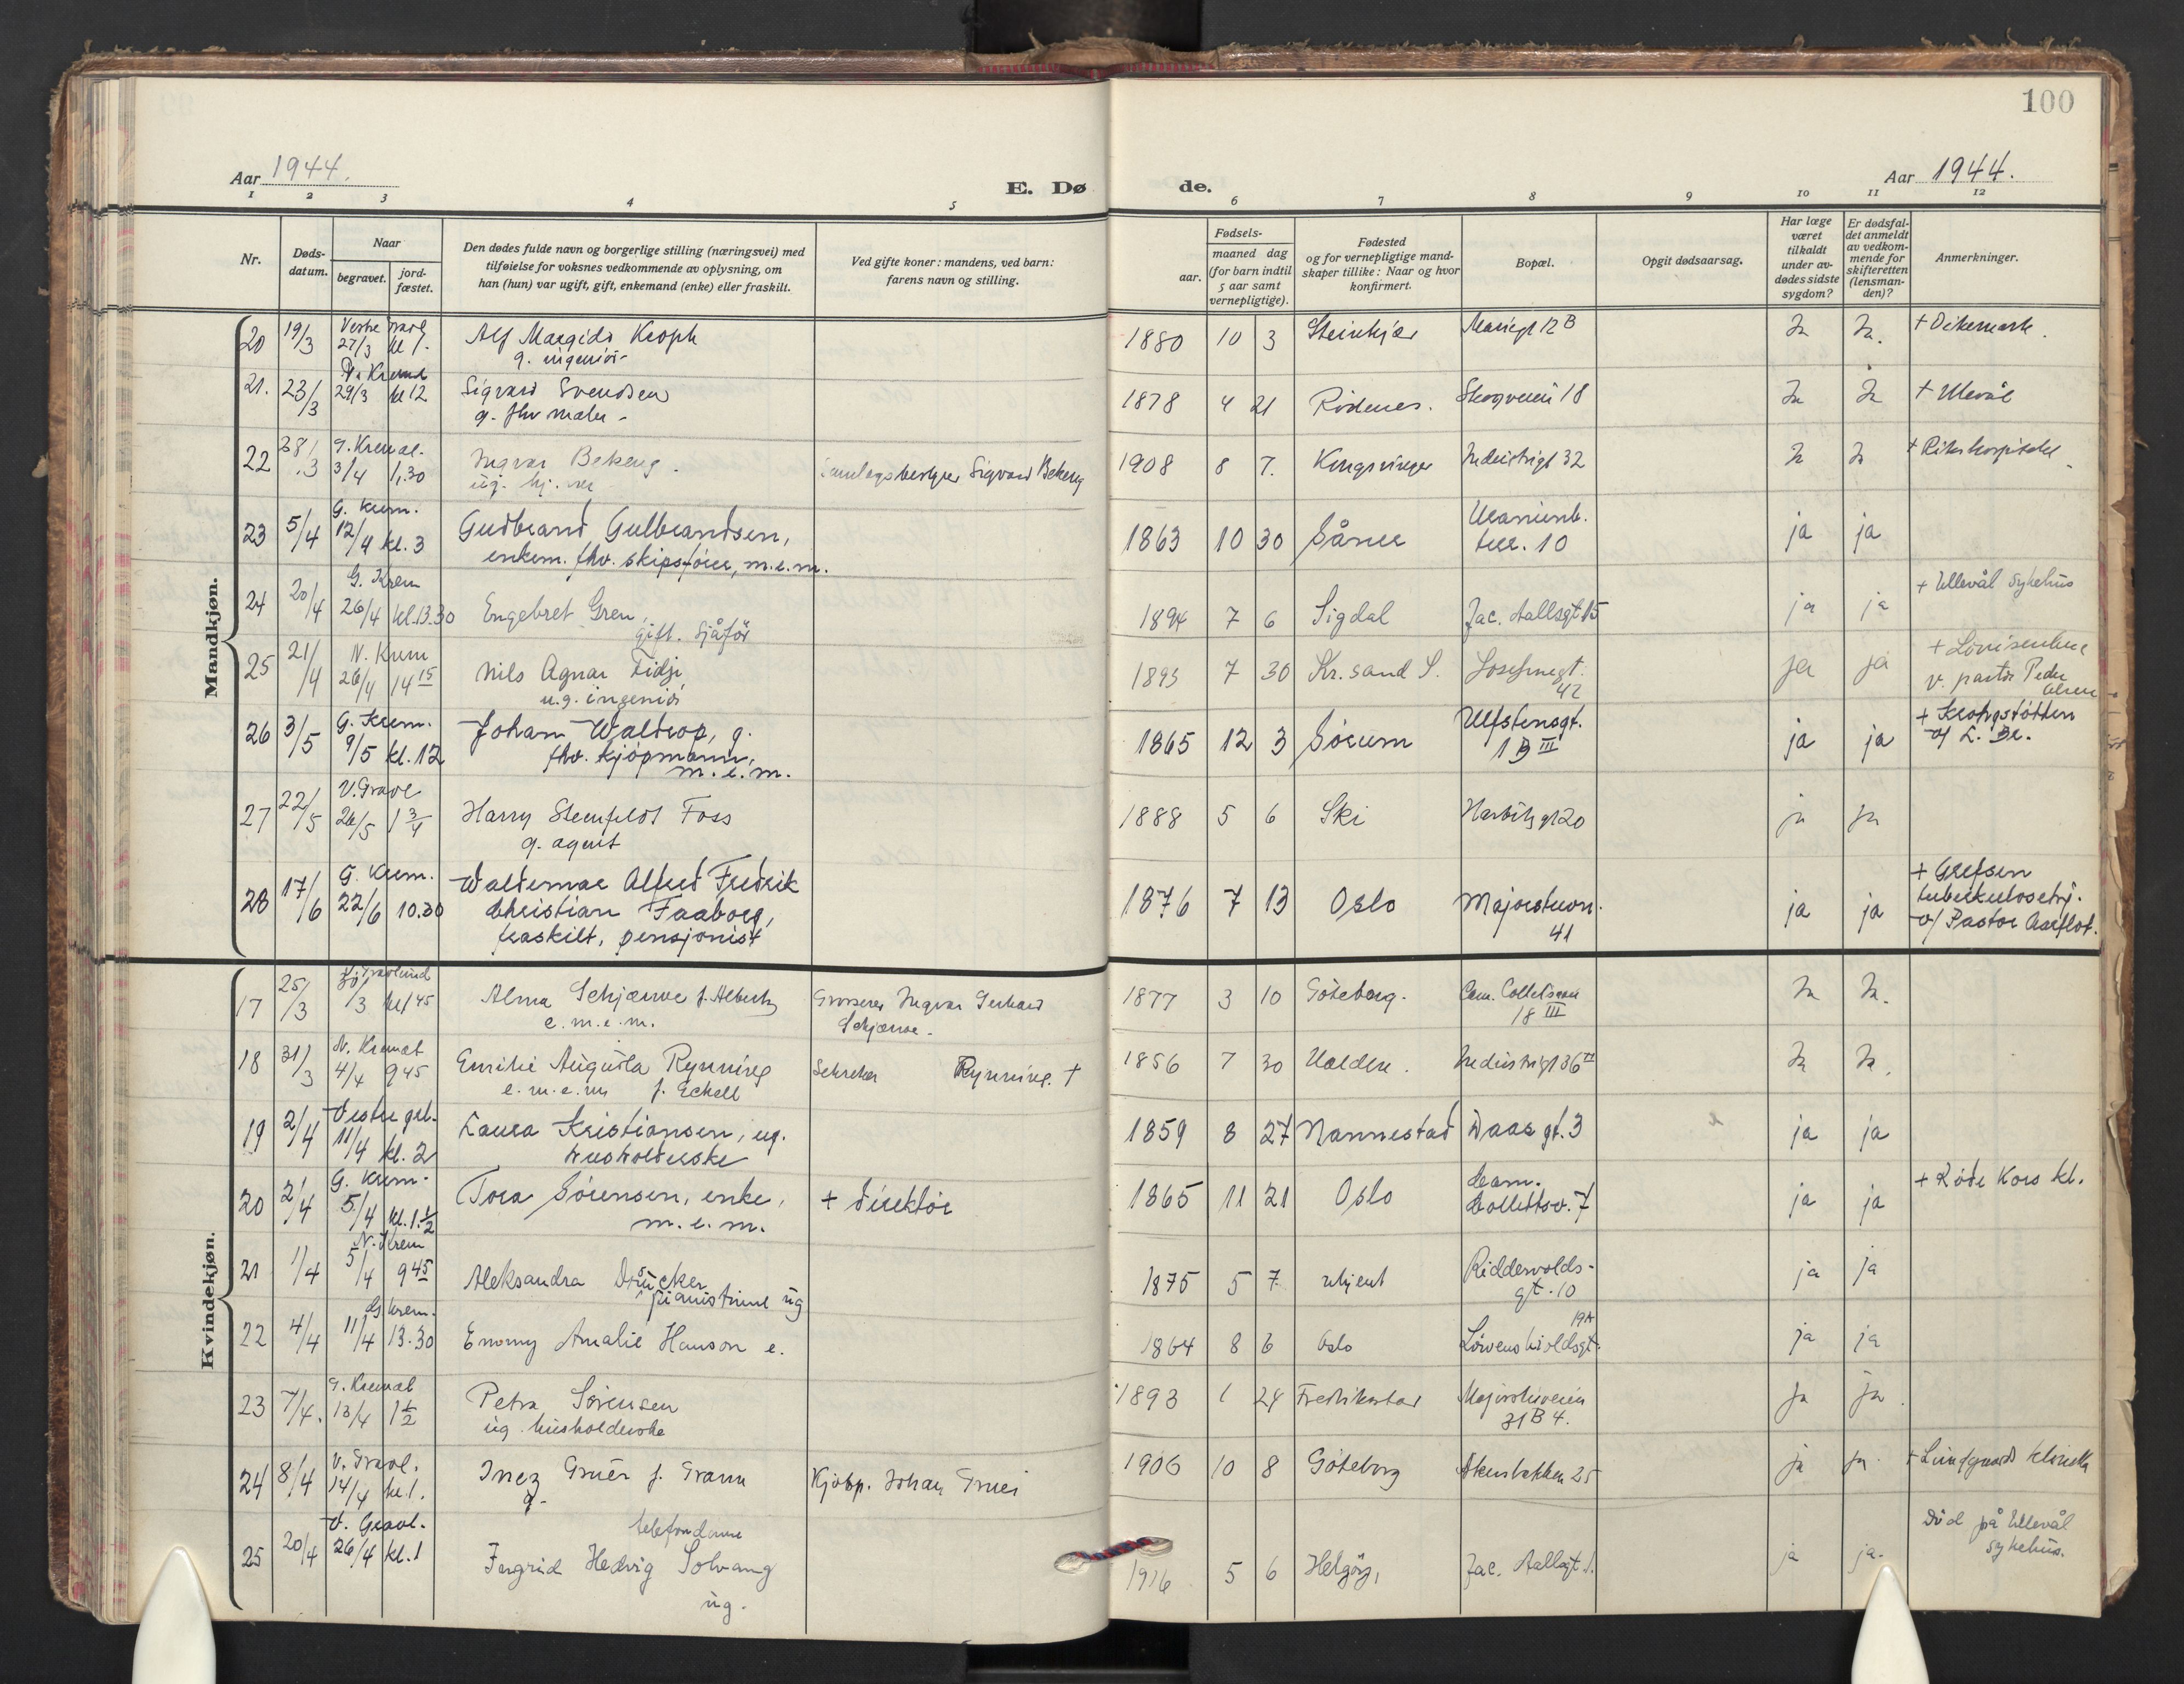 100
Aar 1944.
E. Dø
de.
Aar 1944.
1 2 3 4 5 6 7 8 9 10 11 12
Nr.
Døds-
datum.
Naar
begravet.
jord-
fæstet.
Den dødes fulde navn og borgerlige stilling (næringsvei) med
tilføielse for voksnes vedkommende av oplysning, om
han (hun) var ugift, gift, enkemand (enke) eller fraskilt.
Ved gifte koner: mandens, ved barn:
farens navn og stilling.
Fødsels-
aar.
maaned dag
(for barn indtil
5 aar samt
vernepligtige).
Fødested
og for vernepligtige mand-
skaper tillike: Naar og hvor
konfirmert.
Bopæl.
Opgit dødsaarsag.
Har læge
været
tilkaldt
under av-
dødes sidste
sygdom?
Er dødsfal-
det anmeldt
av vedkom-
mende for
skifteretten
(lensman-
den)?
Anmerkninger.
Mandkjøn.
20 19/3 Vestre Gravl 27/3 kl 1. Alf Margido Kroph 1880 10 3 Steinkjer Mariegt 12 B Ja Ja. + Dikemark.
g. ingeniør
21. 23/3 N. Kremat 29/3 kl 12 Sigvard Svendsen 1878 4 21 Rødenes. Skogveien 18 Ja Ja + Ullevål
g. fhv maler
22 28/3 G. Kremat. 3/4 1.30 Ingvar Bekeng. Sigvard Bekeng 1908 8 7. Kongsvinger Industrigt 32 Ja Ja + Rikshospitalet
ug.
23 5/4 G. Krem. 12/4 kl. 3 Gudbrand Gulbrandsen, 1863 10 30 Såner Uranienb. terr. 10 ja ja
enkem. fhv. skipsfører, m.e.m.
24 20/4 G. Krem 26/4 kl. 13.30 Engebret Gren, 1894 7 6 Sigdal Jac. Aallsgt 15 ja ja + Ullevål sykehus
gift. sjåfør
25 21/4 N. Krem 26/4 14 15 Nils Agnar Tidje, 1893 7 30 Kr.sand S. Josefinegt. 42 ja ja + Lovisenberg
u.g. ingeniør v. pastor Peder Olsen
26 3/5 G. Krem. 9/5 kl. 12 Johan Waltrop, g. 1865 12 3 Sørum Ulfstensgt. 1 B III ja ja + Krohgstøtten
fhv. kjøpmann, m.e.m.
27 22/5 V. Gravl 26/5 1 3/4 Harry Steenfeldt Foss 1888 5 6 Ski Harbitz gt 20 ja ja
g. agent
28 17/6 G. Krem. 22/6 10.30 Waldemar Alfred Fredrik 1876 7 13 Oslo Majorstuen. 41 ja ja + Grefsen
Christian Faaborg, tuberkulosehj.
fraskilt, pensjonist v/ Pastor Aarflot.
Kvindekjøn.
17 25/3 30/3 kl 1 45 Alma Schjærve f. Alberty Grosserer Ingvar Gerhard 1877 3 10 Göteborg. Cam. Collettsvei 18 III Ja Ja.
e.m.e.m. Schjærve.
18 31/3 N. Kremat 4/4 9 45 Emilie Augusta Rynning Sekretær Rynning. † 1856 7 30 Halden. Industrigt 36 II Ja Ja.
e.m.e.m f. Eckell
19 2/4 Vestre grl. 11/4 kl. 2 Laura Kristiansen, ug. 1859 8 27 Nannestad Daas gt. 3 ja ja
husholderske
20 2/4 G. Krem. 5/4 kl. 1. 1/2 Tora Sørensen, enke, + direktør 1865 11 21 Oslo Cam. Collettsv. 7 ja ja + Røde Kors kl.
m.e.m.
21 1/4 N. Krem 5/4 9 45 Aleksandra Drücker 1875 5 7 ukjent Riddervolds- gt. 10 ja ja
pianistinne ug
22 4/4 G krem. 11/4 13.30 Emmy Amalie Hanson e. 1864 8 6 Oslo Løvenskioldsgt. 19A ja ja
23 7/4. G. Kremat 13/4 1 1/2 Petra Sørensen 1893 1 24 Fredrikstad Majorstuveien 31 B 4. ja ja
ug. husholderske
24 8/4 V. Gravl. 14/4 kl. 1. Inez Gruer f. Grann Kjøbp. Johan Gruer 1906 10 8 Göteborg Akersbakken 25 ja ja. + Lundgaards klinikk
g.
25 20/4 V. Gravl. 26/4 kl. 1 Ingrid Hedvig Solvang 1916 5 6 Helgøy, Jac. Aallsgt 1. ja ja. Död på Ullevål
telefondame sykehus.
ug.